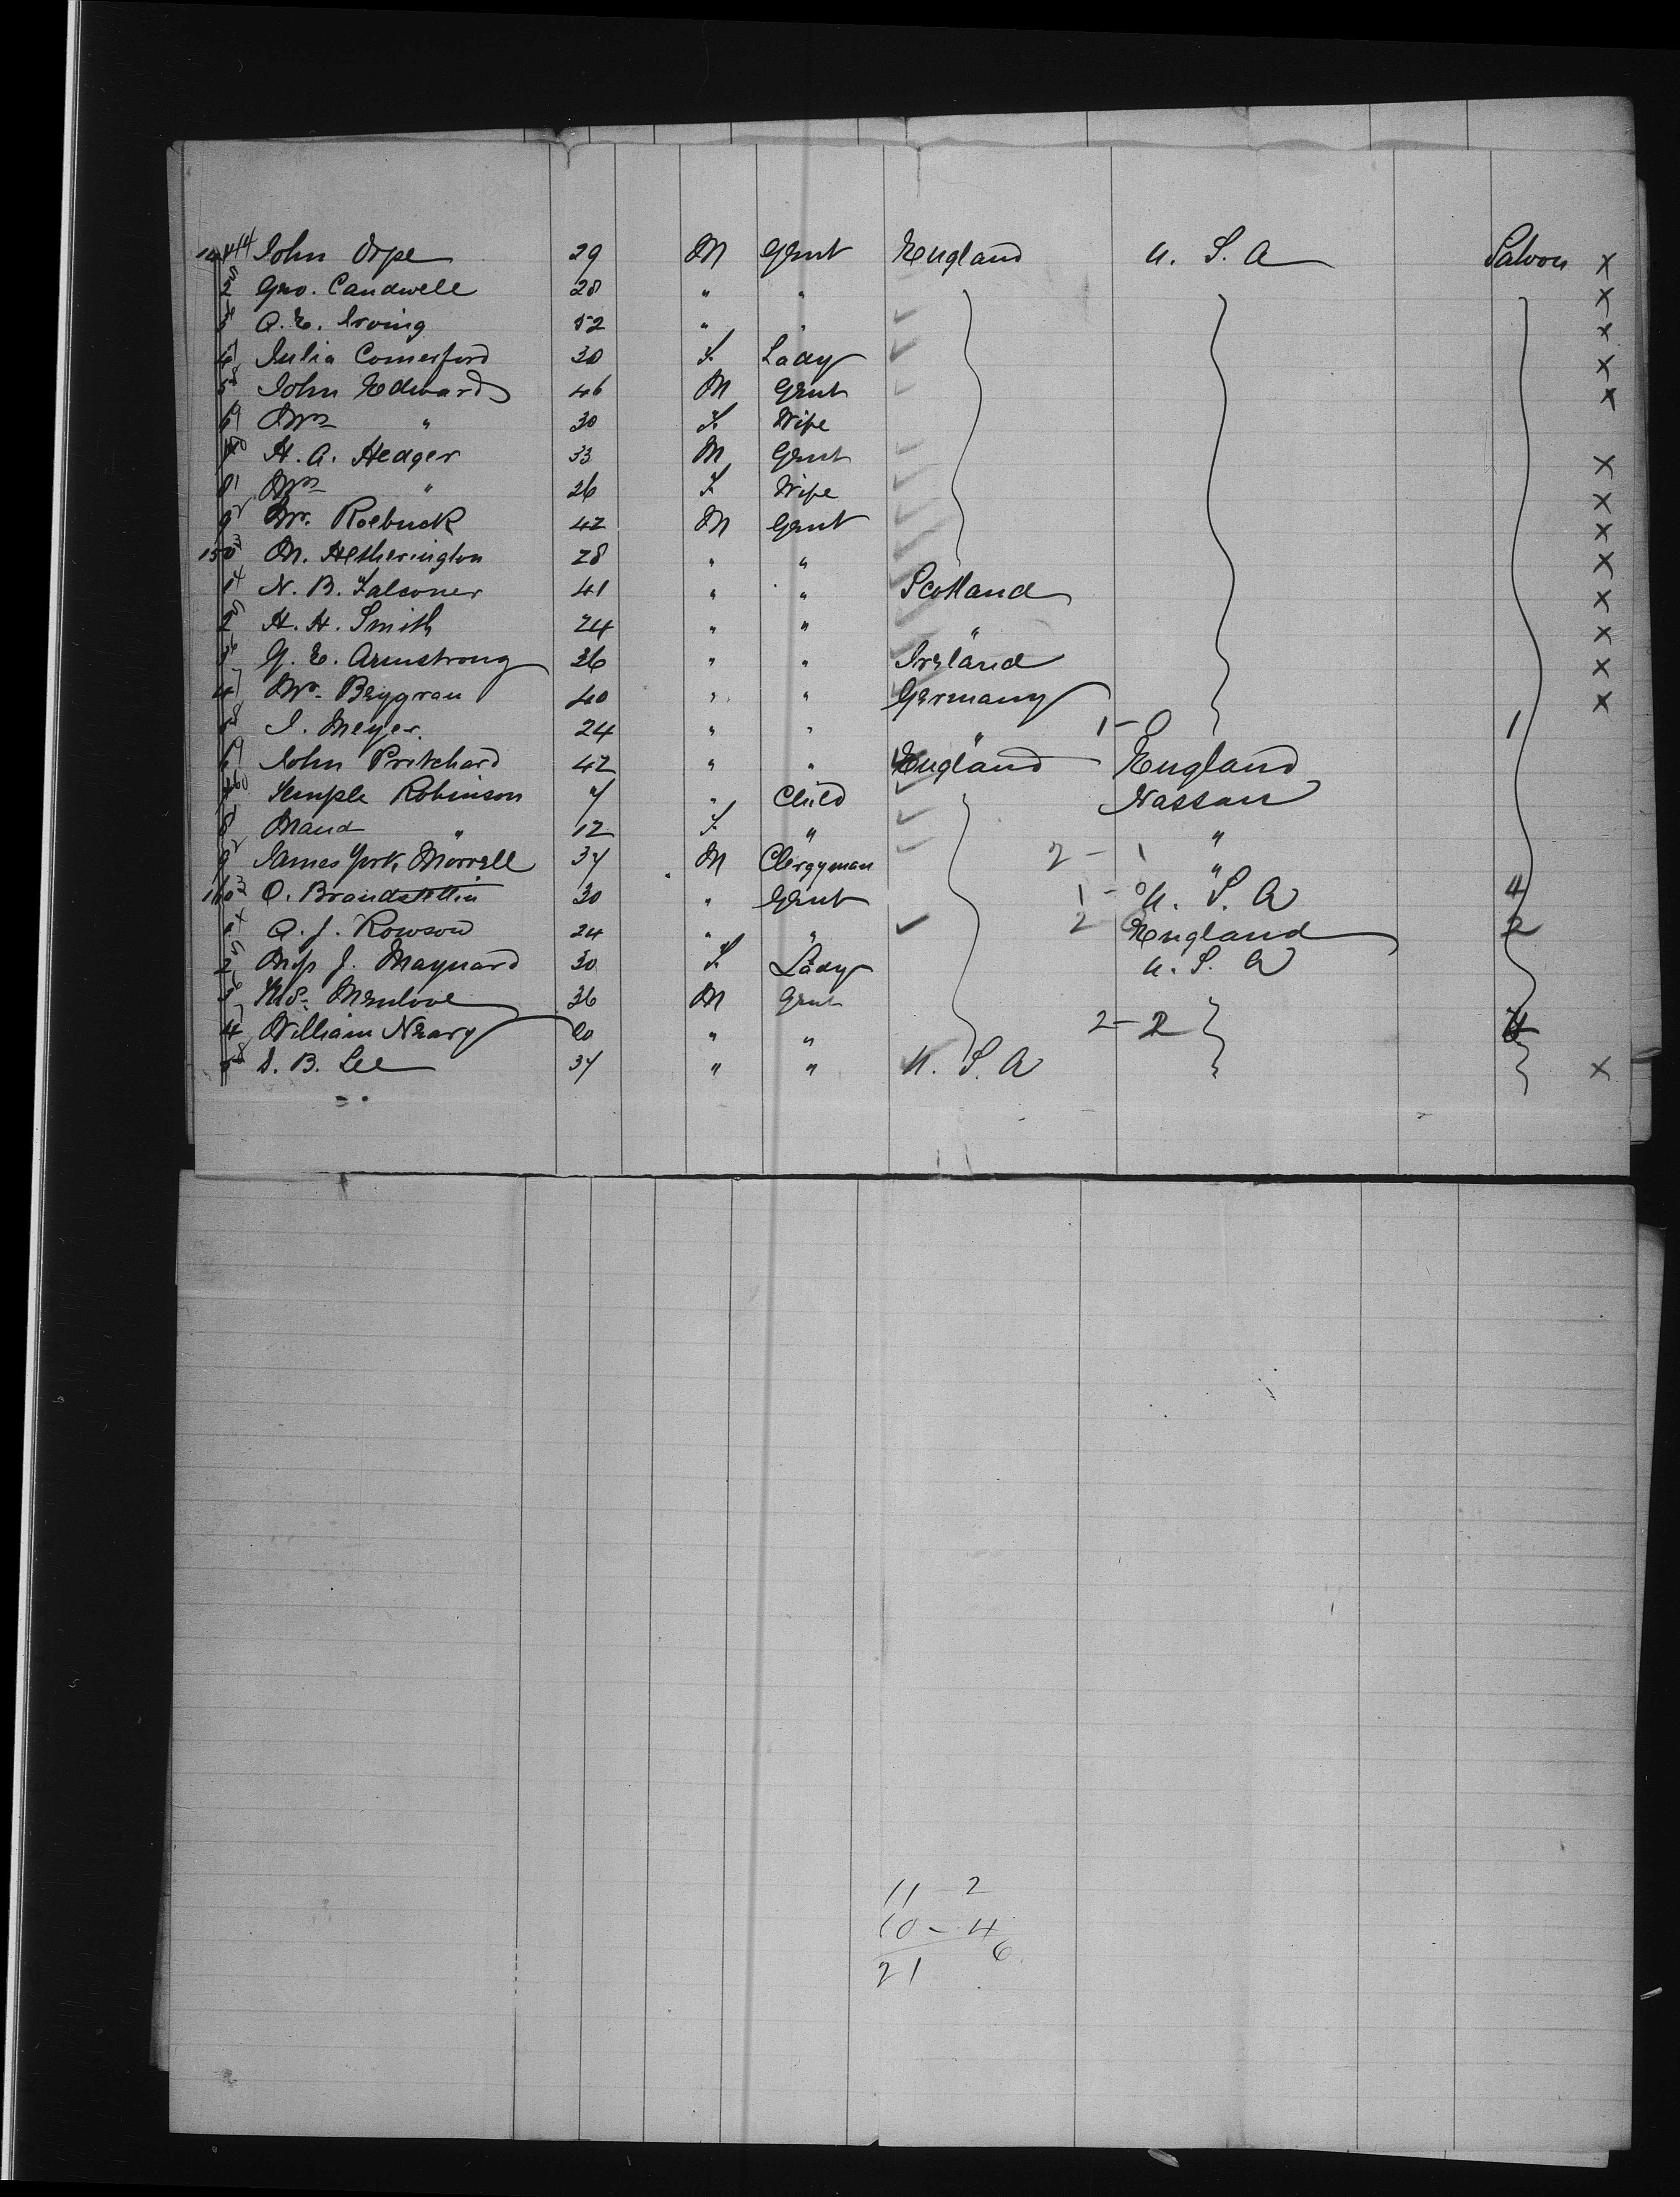 144 John Pope 29 M Gent England U. S. A Saloon X
2 Geo. Candwell 28 " " X
3 A. E. Irving 52 " " X
4 Julia Comerford 30 F. Lady X
5 John Edwards 46 M Gent X
6 Mrs " 30 F. Wife
H. A. Hedger 33 M Gent X
8 Mrs " 26 F. Wife X
9 Mr. Roebuck 42 M Gent X
150 M. Hetherington 28 " " X
N. B. Falconer 41 " " Scotland X
2 H. H. Smith 24 " " " X
3 G. E. Armstrong 36 " " Ireland X
4 40 " " Germany X
5 J. Meyer. 24 " " " 1 - 0 1
6 John Pritchard 42 " " England England
Temple Robinson 7 " Child Nassau
8 Maud " 12 F. " "
9 James York Morrell 37 M Clergyman 2 - 1 "
160 O. Brandstettin 30 " Gent 1 - 0 U. S. A 4
A. J. Rowson 24 " " 2 England 2
2 Miss J. Maynard 30 F. Lady U. S. A
3 Menlove 36 M Gent
4 William Neary 20 " " 2 - 2 4
5 D. B. Lee 37 " " U. S. A X
11 - 2
10 - 4
21 6